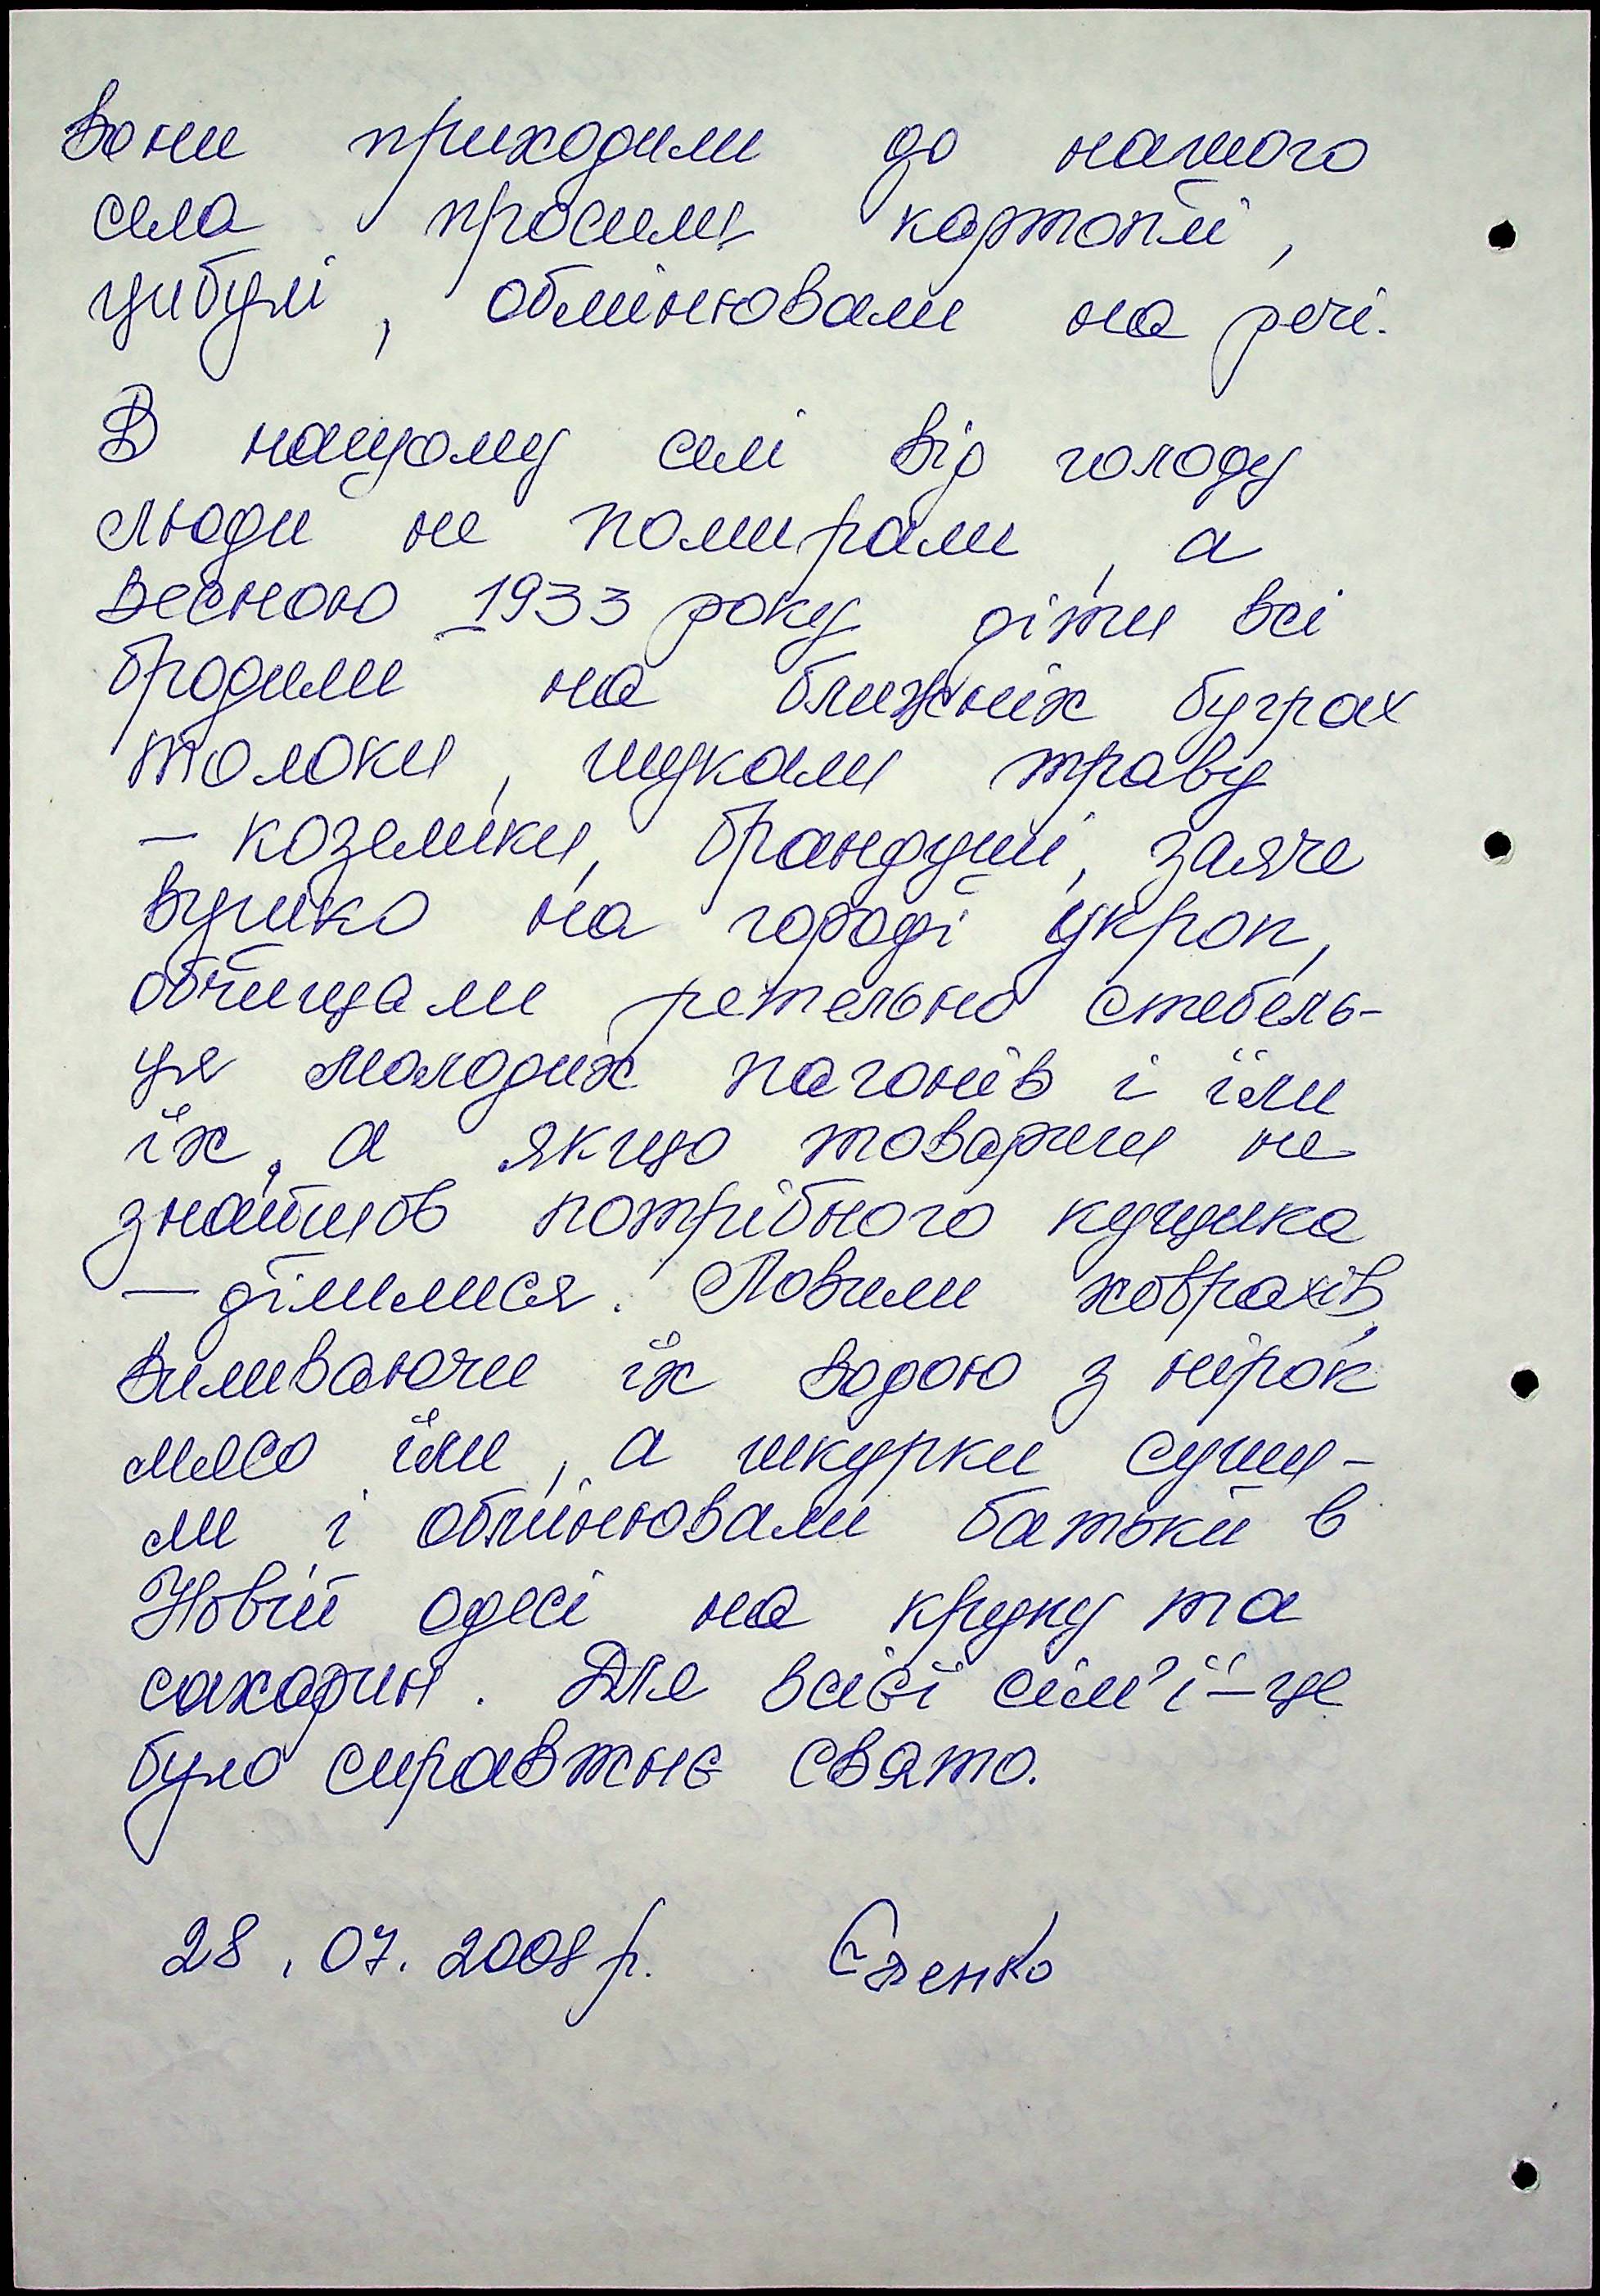 вони приходили до нашого
села просили картоплі,
цибулі, обмінювали на речі.
В нашому селі від голоду
люди не помирали, а
весною 1933 року діти всі
бродили на ближніх буграх
толоки, шукали траву
– козелики, брандуші, заяче
вушко на городі укроп,
обчищали ретельно стебель-
ця молодих пагонів і їли
їх, а якщо товариш не
знайшов потрібного кущика
– ділилися. Ловили ховрахів,
виливаючи їх водою з нірок
мясо їли, а шкурки суши-
ли і обмінювали батьки в
Новій одесі на крупу та
сахарин. Для всієї сім'ї – це
було справжнє свято.
28.07.2008 р.